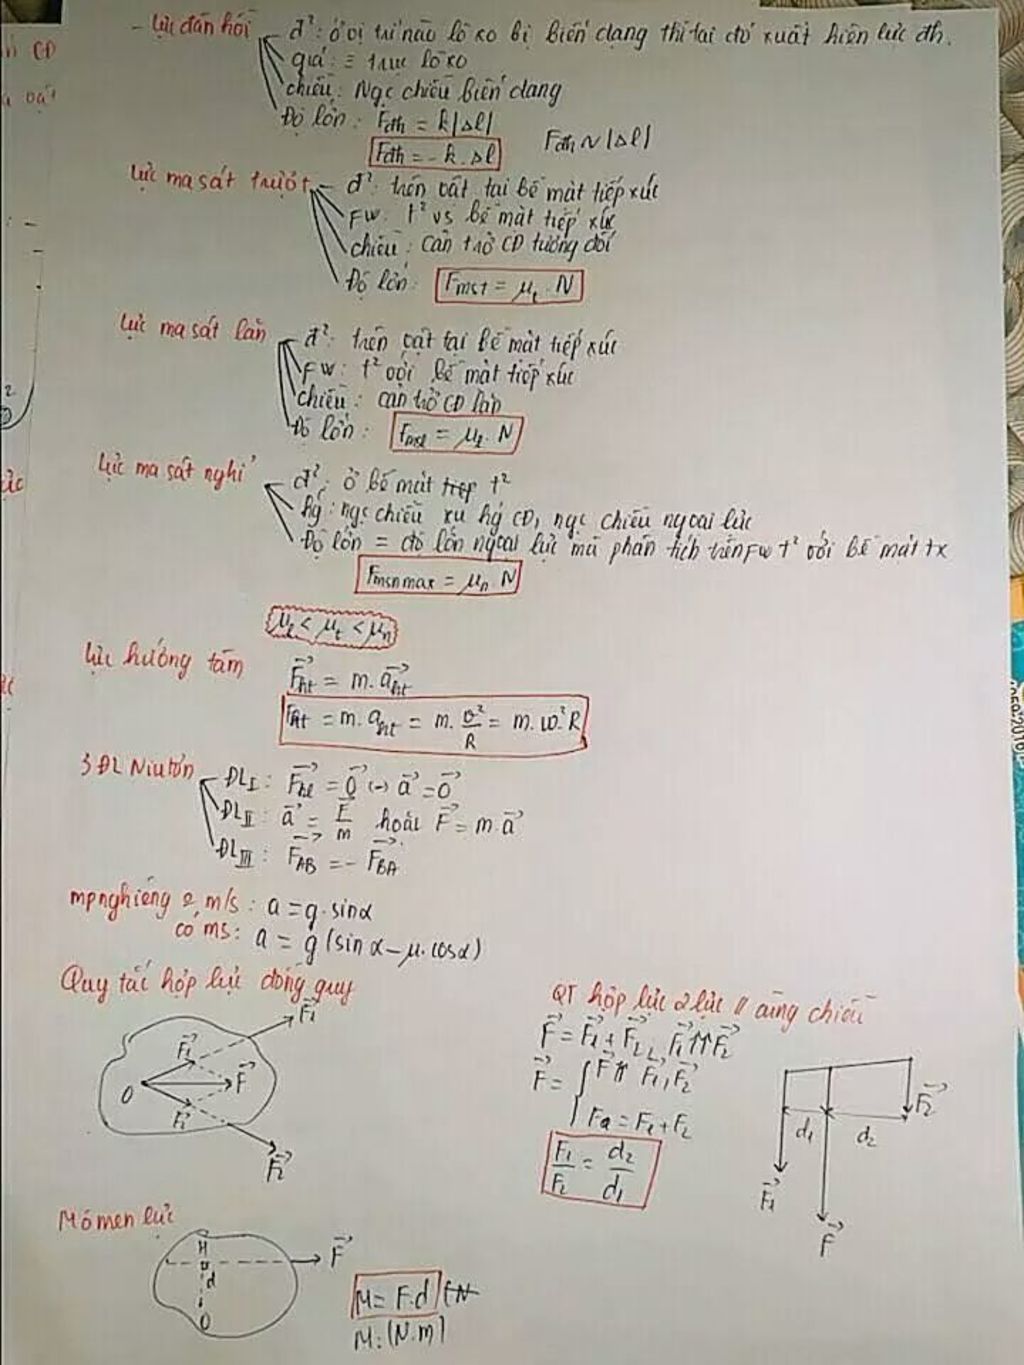 - Lực đàn hồi
đ²: ở vị trí nào lò xo bị biến dạng thì tại đó xuất hiện lực đh.
giá: ≡ trục lò xo
chiều: Ngc chiều biến dạng
Độ lớn: Fđh = k|Δl|
Fđh ~ |Δl|
Fđh = - k. Δl
Lực ma sát trượt
đ²: trên vật tại bề mặt tiếp xúc
FW: t² vs bề mặt tiếp xúc
chiều: cản trở CĐ tương đối
Độ lớn: Fmst = μt. N
Lực ma sát lăn
đ²: trên vật tại bề mặt tiếp xúc
FW: t² với bề mặt tiếp xúc
chiều: cản trở CĐ lăn
Độ lớn: Fmsl = μl. N
Lực ma sát nghỉ
đ²: ở bề mặt tiếp t²
hg: ngc chiều xu hg CĐ, ngc chiều ngoại lực
Độ lớn = độ lớn ngoại lực mà phân tích trên FW t² với bề mặt tx
Fmsn max = μn. N
μl < μt < μn
Lực hướng tâm
F⃗ht = m. a⃗ht
Fht = m. aht = m. v²/R = m. ω². R
3 ĐL Niutơn
ĐL I: F⃗hl = 0⃗ (→) a⃗ = 0⃗
ĐL II: a⃗ = F⃗/m hoặc F⃗ = m. a⃗
ĐL III: F⃗AB = - F⃗BA
mp nghiêng o m/s: a = g. sinα
có ms: a = g (sin α - μ. cosα)
Quy tắc hợp lực đồng quy
F⃗1
F⃗1
O
F⃗
F⃗2
F⃗2
QT hợp lực 2 lực // cùng chiều
F⃗ = F⃗1 + F⃗2, F⃗1 ⇈ F⃗2
F⃗ = { F⃗ ⇈ F⃗1, F⃗2
Fa = F1 + F2
F1/F2 = d2/d1
d1
d2
F⃗2
F⃗1
F⃗
Mômen lực
H
d
O
F⃗
M = F.d (N
M: (N.m)